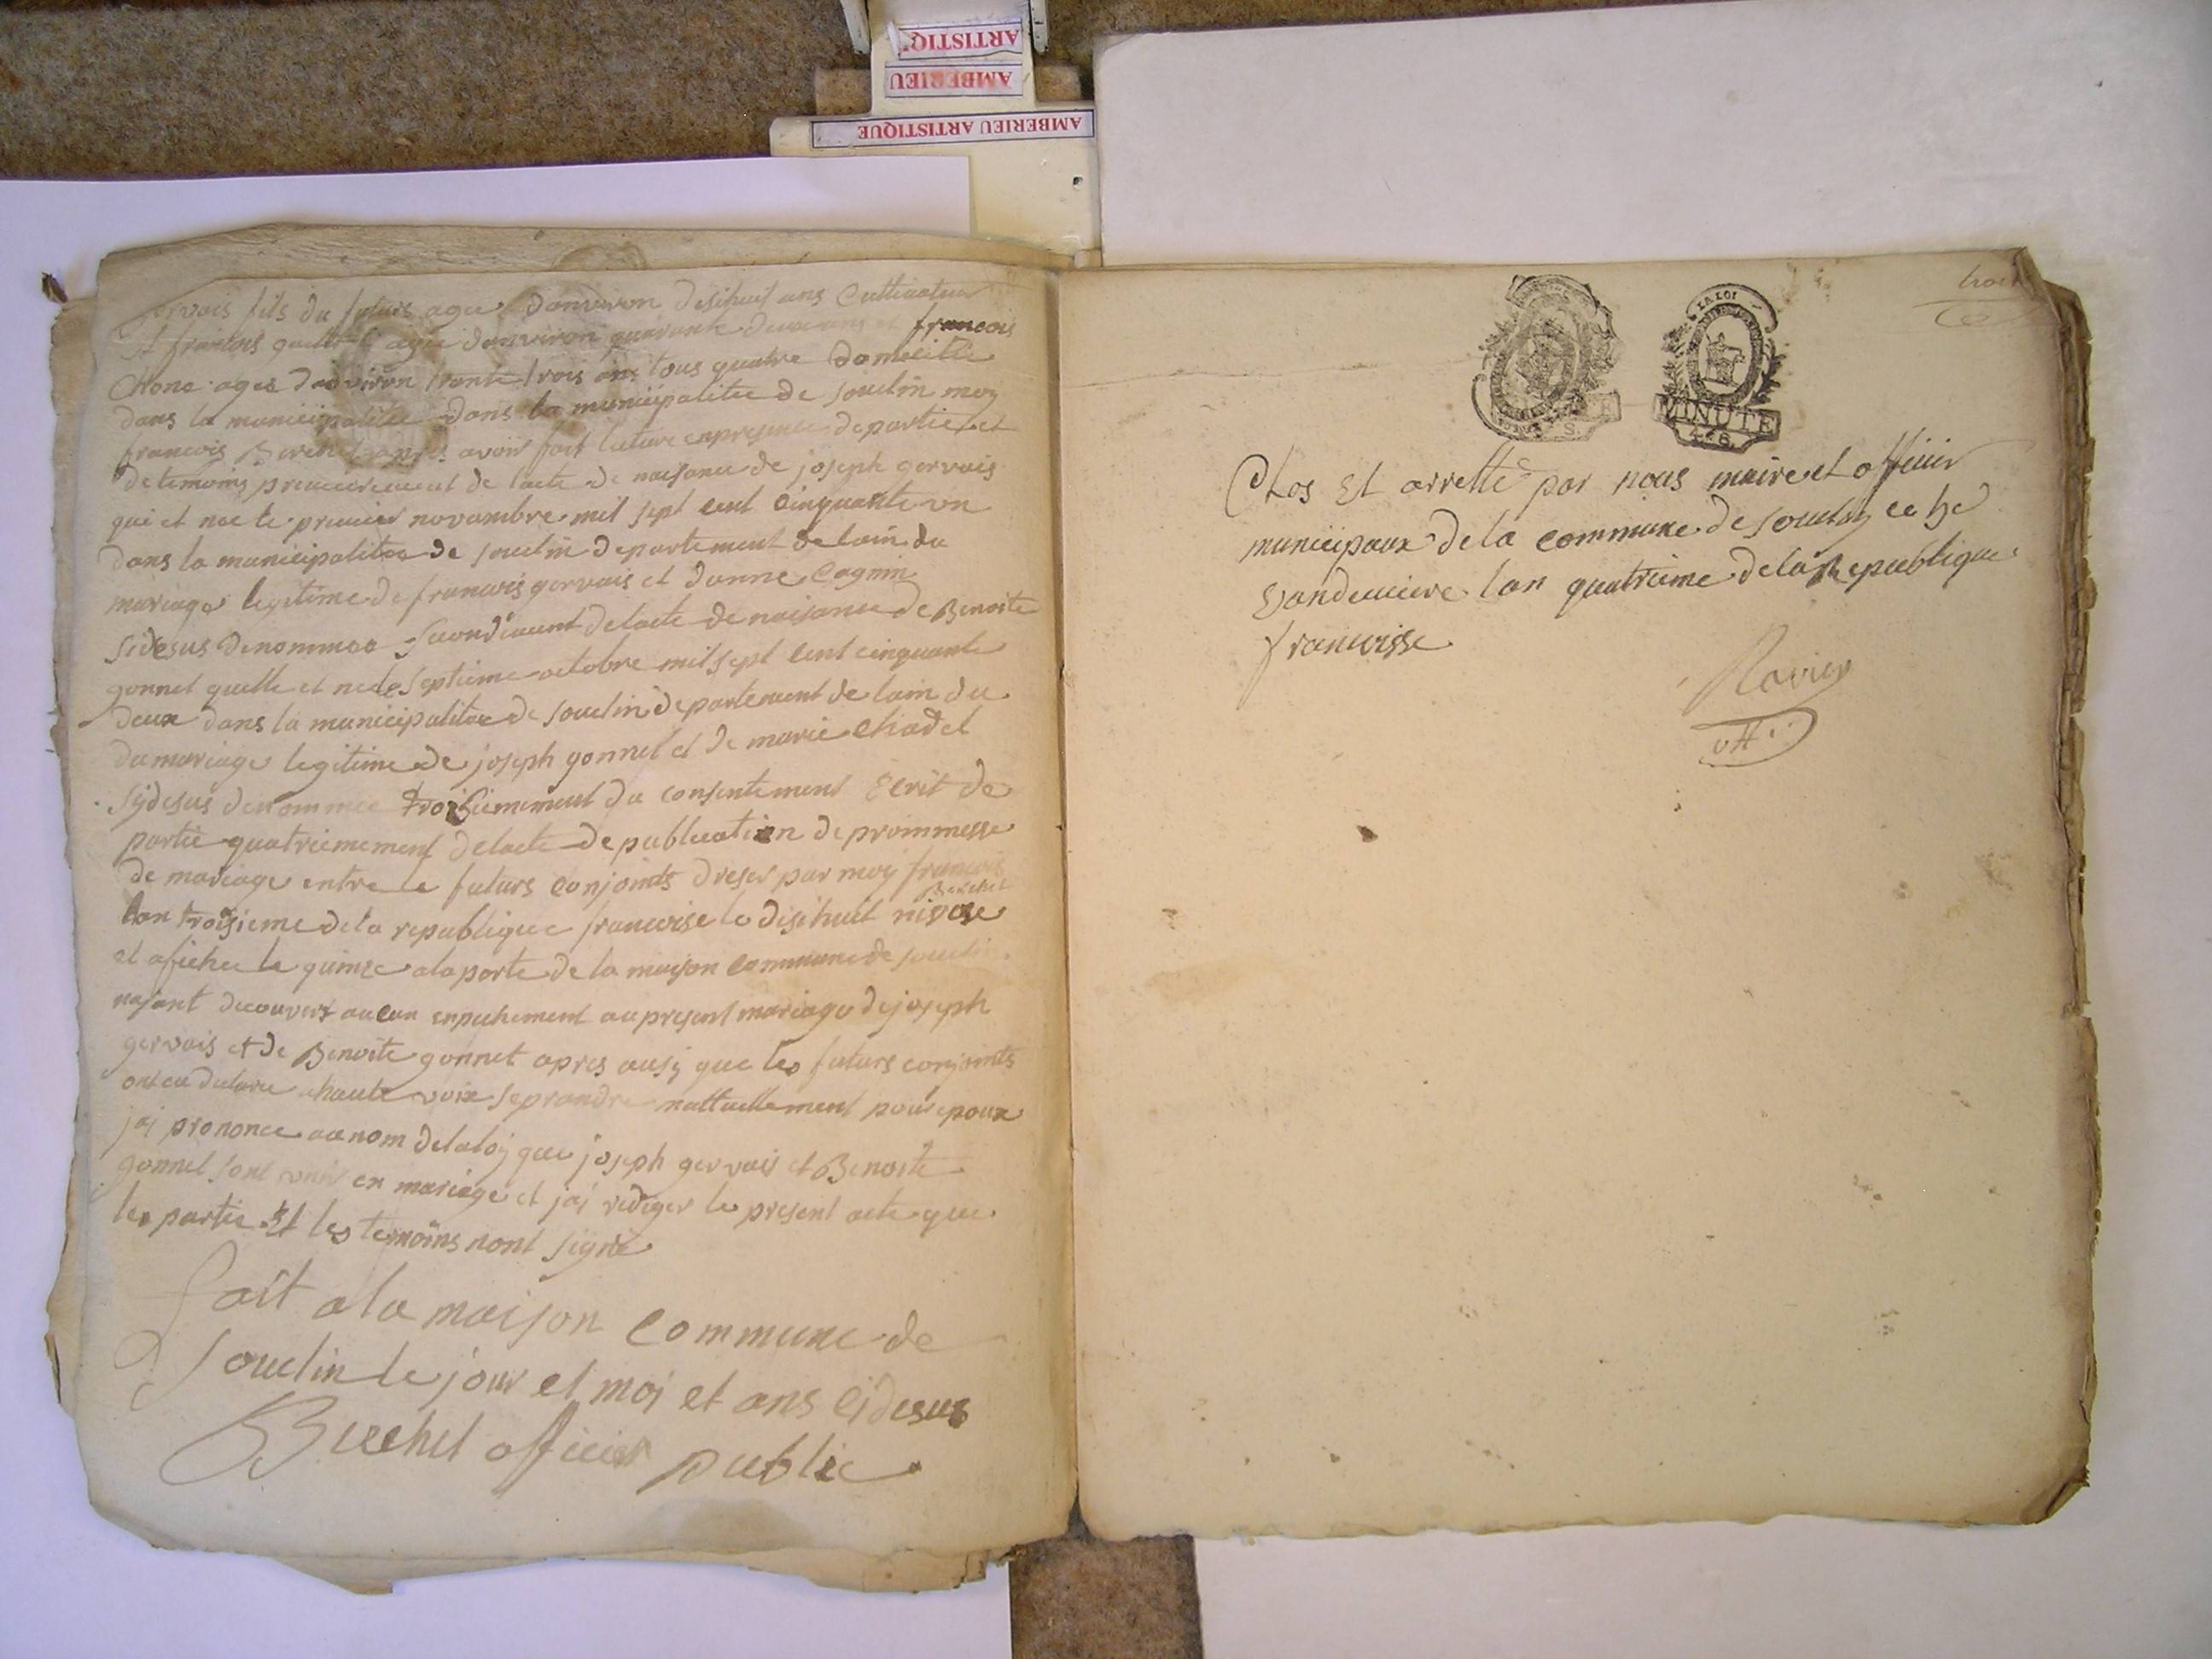 ARTISTIQ
AMBERIEU
AMBERIEU ARTISTIQUE
gervais fils du futurs agee danviron desihuit ans Cultivateur
Et francois agee danviron quarante deux ans et francois
Chene agee danviron trante trois ans tous quatre domicillie
dans la municipalitee dans la municipalitee de souclin moy
francois Berchet apres avoir fait lecture enpresence departie et
detemoins premierement de lacte de naisance de joseph gervais
qui et nee le premier novambre mil sept cent Cinquante un
dans la municipalitee de souclin departement de lain du
mariage legitime de francois gervais et danne Cagnin
sidesus denommee secondement delacte de naisance de Benoite
gonnet quelle et nele septieme octobre mil sept cent cinquante
deux dans la municipalitee de souclin departement de lain du
du mariage legitime de joseph gonnet et de marie Chadel
sydesus denommee troisiemement du consentement Ecrit de
partie quatriemement delacte de publication de prommesse
de mariage entre le futurs conjoints dreser par moy francois
Berchet
lan troisieme dela republique francoise le disihuit nivose
et afichee le quinze alaporte de la maison commune de souclin
najant decouvert aucun enpechement aupresent mariage dejoseph
gervais et de Benoite gonnet apres ausy que les futurs conjoints
onteu declaree ahaute voix seprandre muttuellement pour epoux
jai prononcee aunom delaloy que joseph gervais et Benoite
gonnet sont unis en mariage et jai rediger le present acte que
les partie Et les temoins nont signe
fait ala maison commune de
souclin le jour et moi et ans cidesus
Berchet officier public
LA LOI
MINUTE
Clos Et arretté par nous maire et officier
municipaux dela commune de souclin ce
Vandemiere lan quatrieme dela Republique
francoisse
Ravier
off.